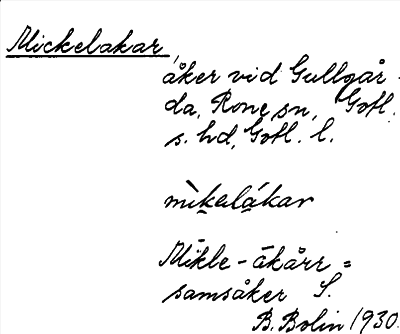 Mickelakar,
åker vid Gullgår-
da, Rone sn, Gotl.
s. hd, Gotl. l.
mìkalákar
Mikle-åkårr =
samsåker S.
B. Bolin 1930.